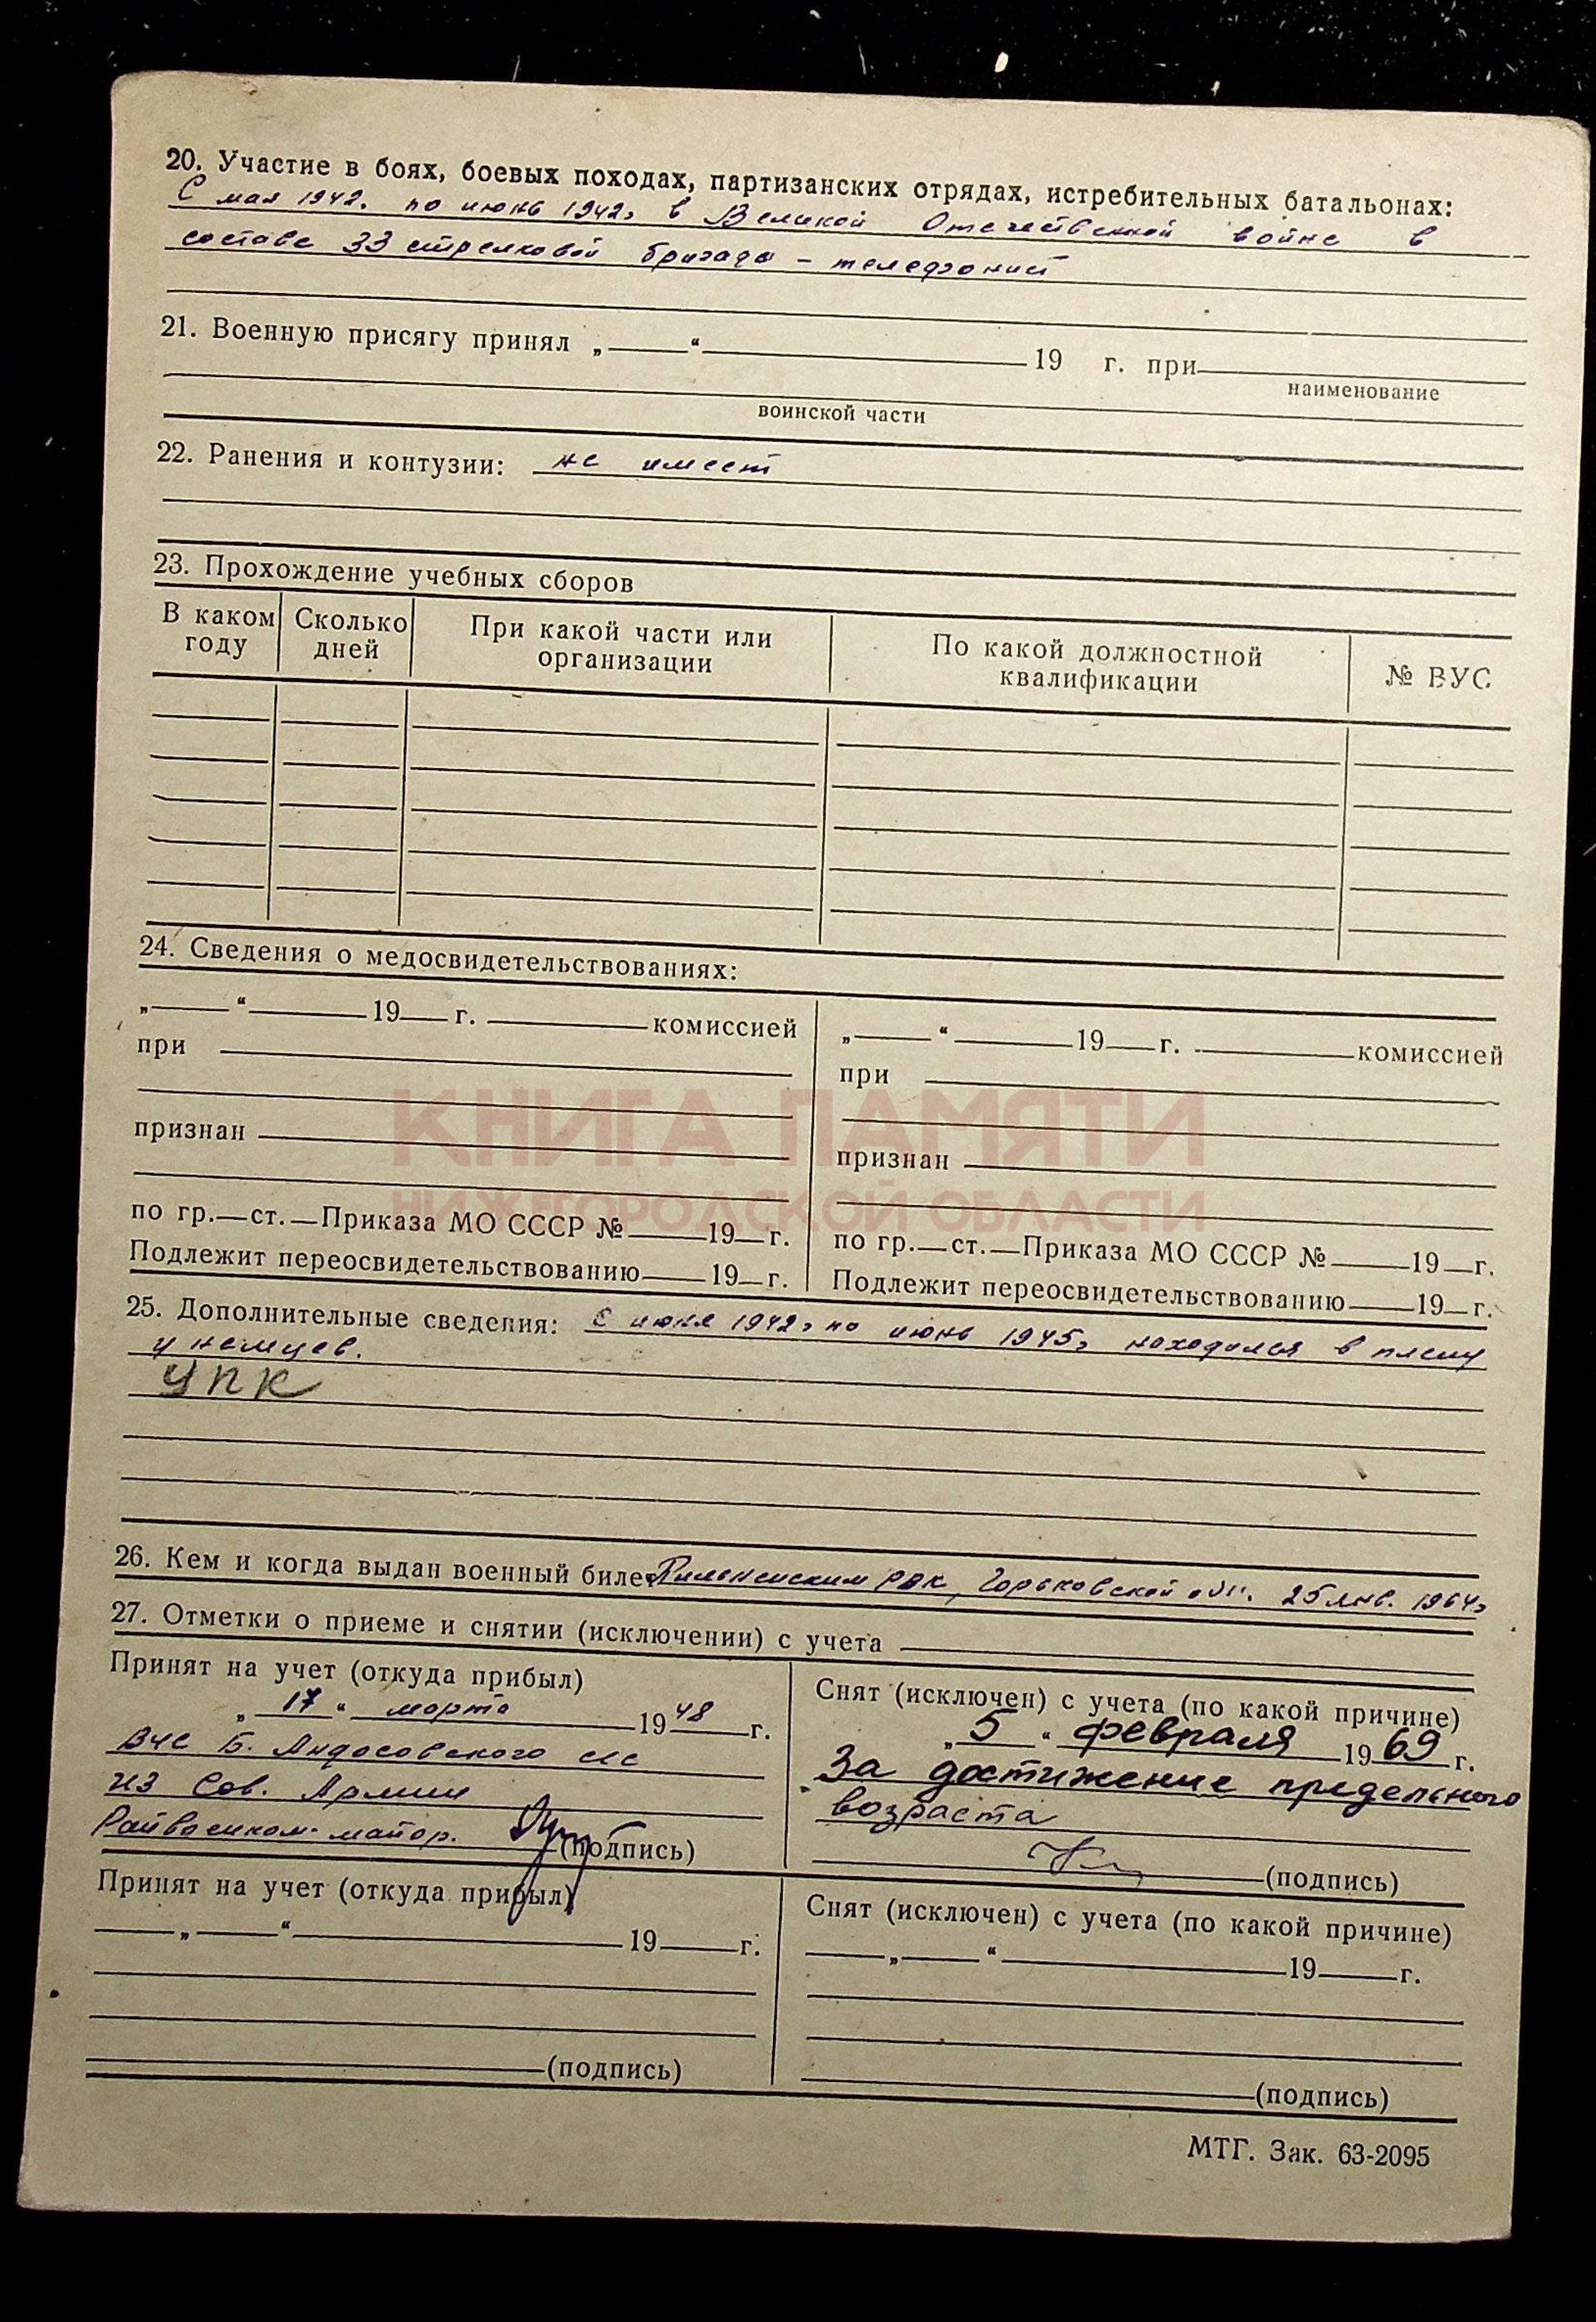 20. Участие в боях, боевых походах, партизанских отрядах, истребительных батальонах:
С мая 1942г. по июнь 1942г. в Великой Отечественной войне в
составе 33 стрелковой бригады – телефонист
21. Военную присягу принял „ “ 19 г. при
наименование
воинской части
22. Ранения и контузии: не имеет
23. Прохождение учебных сборов
В каком году Сколько дней При какой части или организации По какой должностной квалификации № ВУС
24. Сведения о медосвидетельствованиях:
„ “ 19 г. комиссией
при
признан
по гр. ст. Приказа МО СССР № 19 г.
Подлежит переосвидетельствованию 19 г.
„ “ 19 г. комиссией
при
признан
по гр. ст. Приказа МО СССР № 19 г.
Подлежит переосвидетельствованию 19 г.
КНИГА ПАМЯТИ
НИЖЕГОРОДСКОЙ ОБЛАСТИ
25. Дополнительные сведения: С июня 1942г по июнь 1945г находился в плену
у немцев.
УПК
26. Кем и когда выдан военный билет Пильненским РВК, Горьковской обл. 25 янв. 1964г
27. Отметки о приеме и снятии (исключении) с учета
Принят на учет (откуда прибыл)
„ 17 “ марта 1948 г.
ВУС Б. Андосовского с/с
из Сов. Армии
Райвоенком майор. (подпись)
Снят (исключен) с учета (по какой причине)
„ 5 “ февраля 1969 г.
За достижение предельного
возраста
(подпись)
Принят на учет (откуда прибыл)
„ “ 19 г.
(подпись)
Снят (исключен) с учета (по какой причине)
„ “ 19 г.
(подпись)
МТГ. Зак. 63-2095